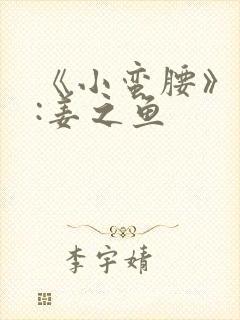 《小蛮腰》
:姜之鱼
李宇婧